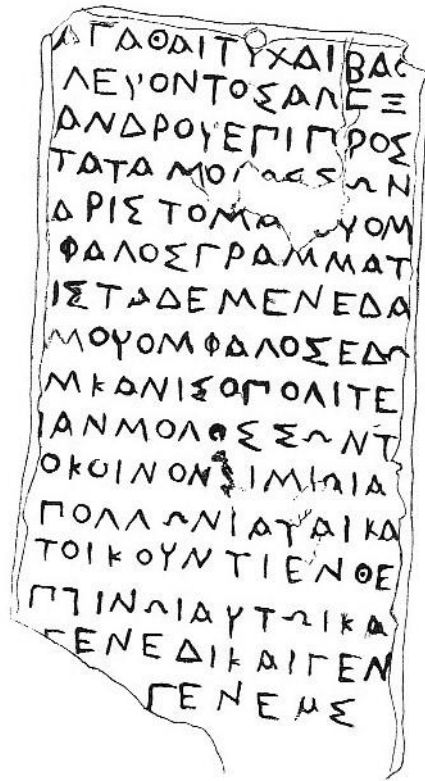 ΑΓΑΘΑΙΤΥΧΑΙΒΑΣ
ΛΕΥΟΝΤΟΣΑΛΕΞ
ΑΝΔΡΟΥΕΠΙΠΡΟΣ
ΤΑΤΑΜΟΛΟΣΣΩΝ
ΑΡΙΣΤΟΜΑ ΥΟΜ
ΦΑΛΟΣΓΡΑΜΜΑΤ
ΙΣΤΑΔΕΜΕΝΕΔΑ
ΜΟΥΟΜΦΑΛΟΣΕΔΩ
ΜΚΑΝΙΣΟΠΟΛΙΤΕ
ΙΑΝΜΟΛΟΣΣΩΝΤ
ΟΚΟΙΝΟΝΣΙΜΙΩΙΑ
ΠΟΛΛΩΝΙΑΤΑΙΚΑ
ΤΟΙΚΟΥΝΤΙΕΝΘΕ
ΠΤΙΝΩΙΑΥΤΩΙΚΑ
ΓΕΝΕΔΙΚΑΙΓΕΝ
ΓΕΝΕΜΣ